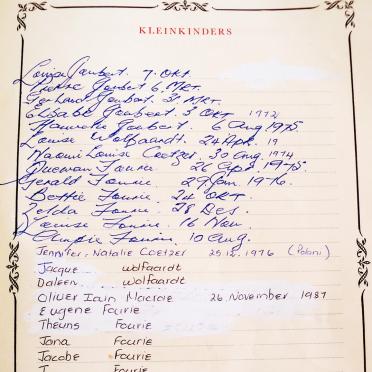 KLEINKINDERS
Louise Joubert. 7. OKT.
Joubert 6. MRT.
Gerhard Joubert. 31 MRT.
Elsabé Joubert. 3 OKT 1972
Hannetjie Joubert. 6 Aug 1975.
Louise Wolfaardt. 24 Apr. 19
Naomi Louise Coetzer. 30 Aug. 1974
Fourie. 26 Sept. 1975.
Gerald Fourie. 29 Jan. 1976.
Bettie Fourie. 24 OKT
Zelda Fourie. 28 Des.
Louise Fourie. 16 Nov.
Fourie. 10 Aug.
Jennifer. Natalie Coetzer 25.12.1976 (Poloni)
Jacque Wolfaardt
Daleen Wolfaardt
Oliver Iain Macrae 26 November 1987
Eugene Fourie
Theuns Fourie
Jana Fourie
Jacobe Fourie